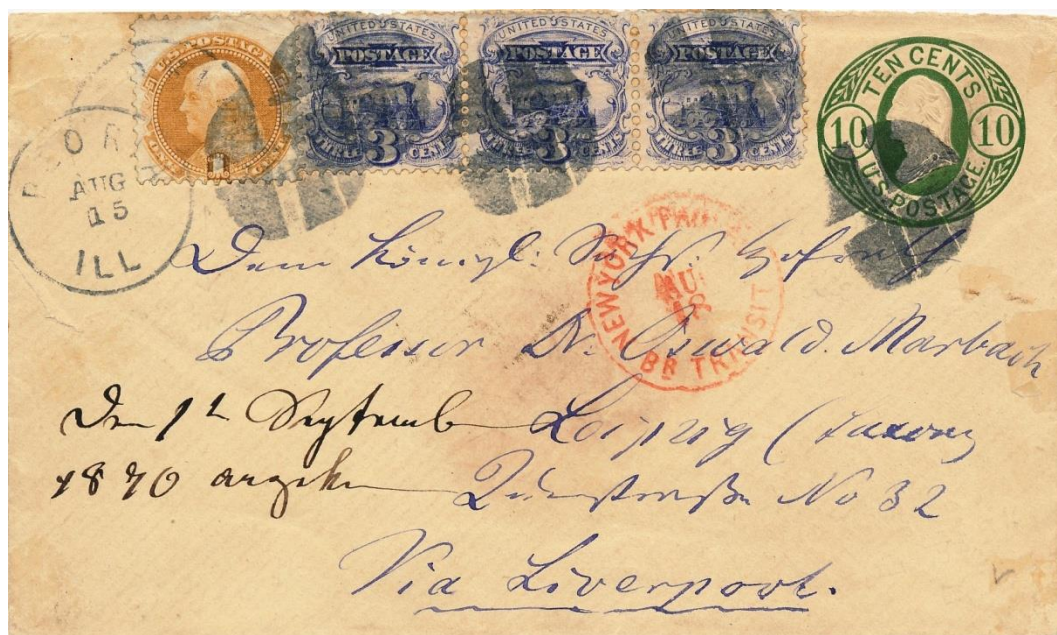 U.S. POSTAGE
ONE CENT
1
UNITED STATES
POSTAGE
THREE CENTS
3
UNITED STATES
POSTAGE
THREE CENTS
3
UNITED STATES
POSTAGE
THREE CENTS
3
TEN CENTS
10 10
U.S. POSTAGE
AUG
15
ILL
NEW YORK PAID
BR TRANSIT
Dem Königl: Sächs. Hofrath
Professor Dr. Oswald Marbach
Leipzig (Saxony
No 32
Via Liverpool.
Den 1t September
1870